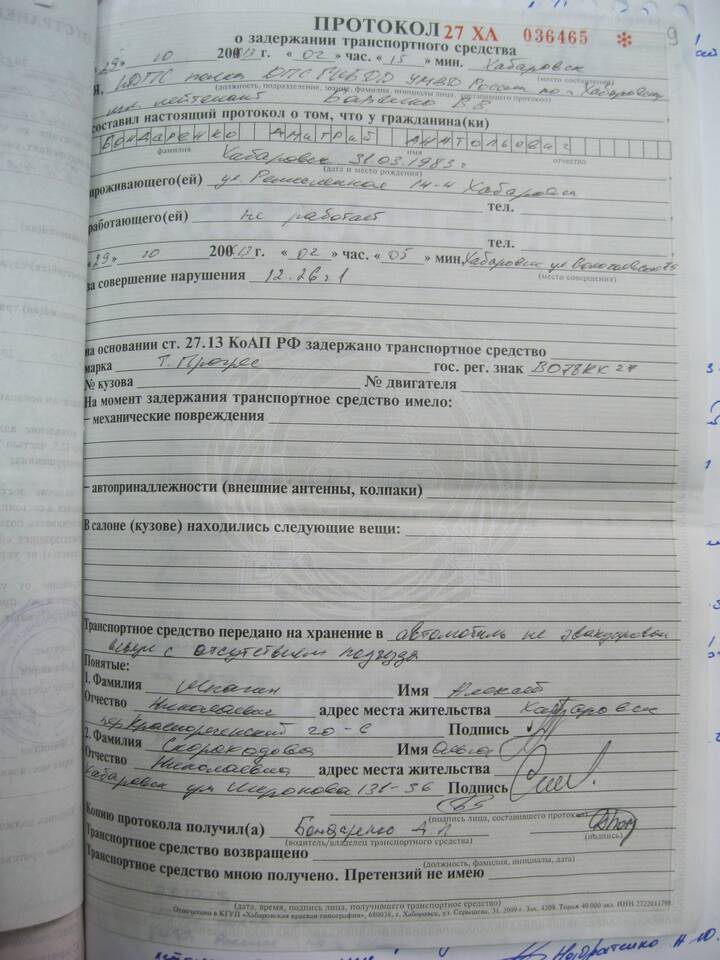 ПРОТОКОЛ 27 ХА 036465 *
9
о задержании транспортного средства
«29» 10 2013 г. «02» час. «15» мин. Хабаровск
(место составления)
Я, ИДПС полка ДПС ГИБДД УМВД России по г. Хабаровску
(должность, подразделение, звание, фамилия, инициалы лица, составившего протокол)
лейтенант В.В
составил настоящий протокол о том, что у гражданина(ки)
БОНДАРЕНКО ДМИТРИЙ АНАТОЛЬЕВИЧ
фамилия имя отчество
Хабаровск 31.03.1983г
(дата и место рождения)
проживающего(ей) ул. Ремесленная 14-4 Хабаровск
тел.
работающего(ей) не работает
тел.
«29» 10 2013 г. «02» час. «05» мин. Хабаровск ул.
за совершение нарушения 12.26 ч 1
(место совершения)
на основании ст. 27.13 КоАП РФ задержано транспортное средство
марка Т. Прогрес гос. рег. знак В078КХ 27
№ кузова № двигателя
На момент задержания транспортное средство имело:
– механические повреждения
– автопринадлежности (внешние антенны, колпаки)
В салоне (кузове) находились следующие вещи:
Транспортное средство передано на хранение в автомобиль не эвакуирован
с отсутствием подъезда
Понятые:
1. Фамилия Имя Алексей
Отчество Николаевич адрес места жительства Хабаровск
пер. Краснореченский 20-6 Подпись
2. Фамилия Скороходова Имя Ольга
Отчество Николаевна адрес места жительства
Хабаровск ул. Шеронова 131-36 Подпись
(подпись лица, составившего протокол)
Копию протокола получил(а) Бондаренко Д А
(водитель/владелец транспортного средства) (подпись)
Транспортное средство возвращено
(должность, фамилия, инициалы, дата)
Транспортное средство мною получено. Претензий не имею
(дата, время, подпись лица, получившего транспортное средство)
Отпечатано в КГУП «Хабаровская краевая типография», 680038, г. Хабаровск, ул. Серышева, 31. 2009 г. Зак. 4209. Тираж 40 000 экз. ИНН 2722041798